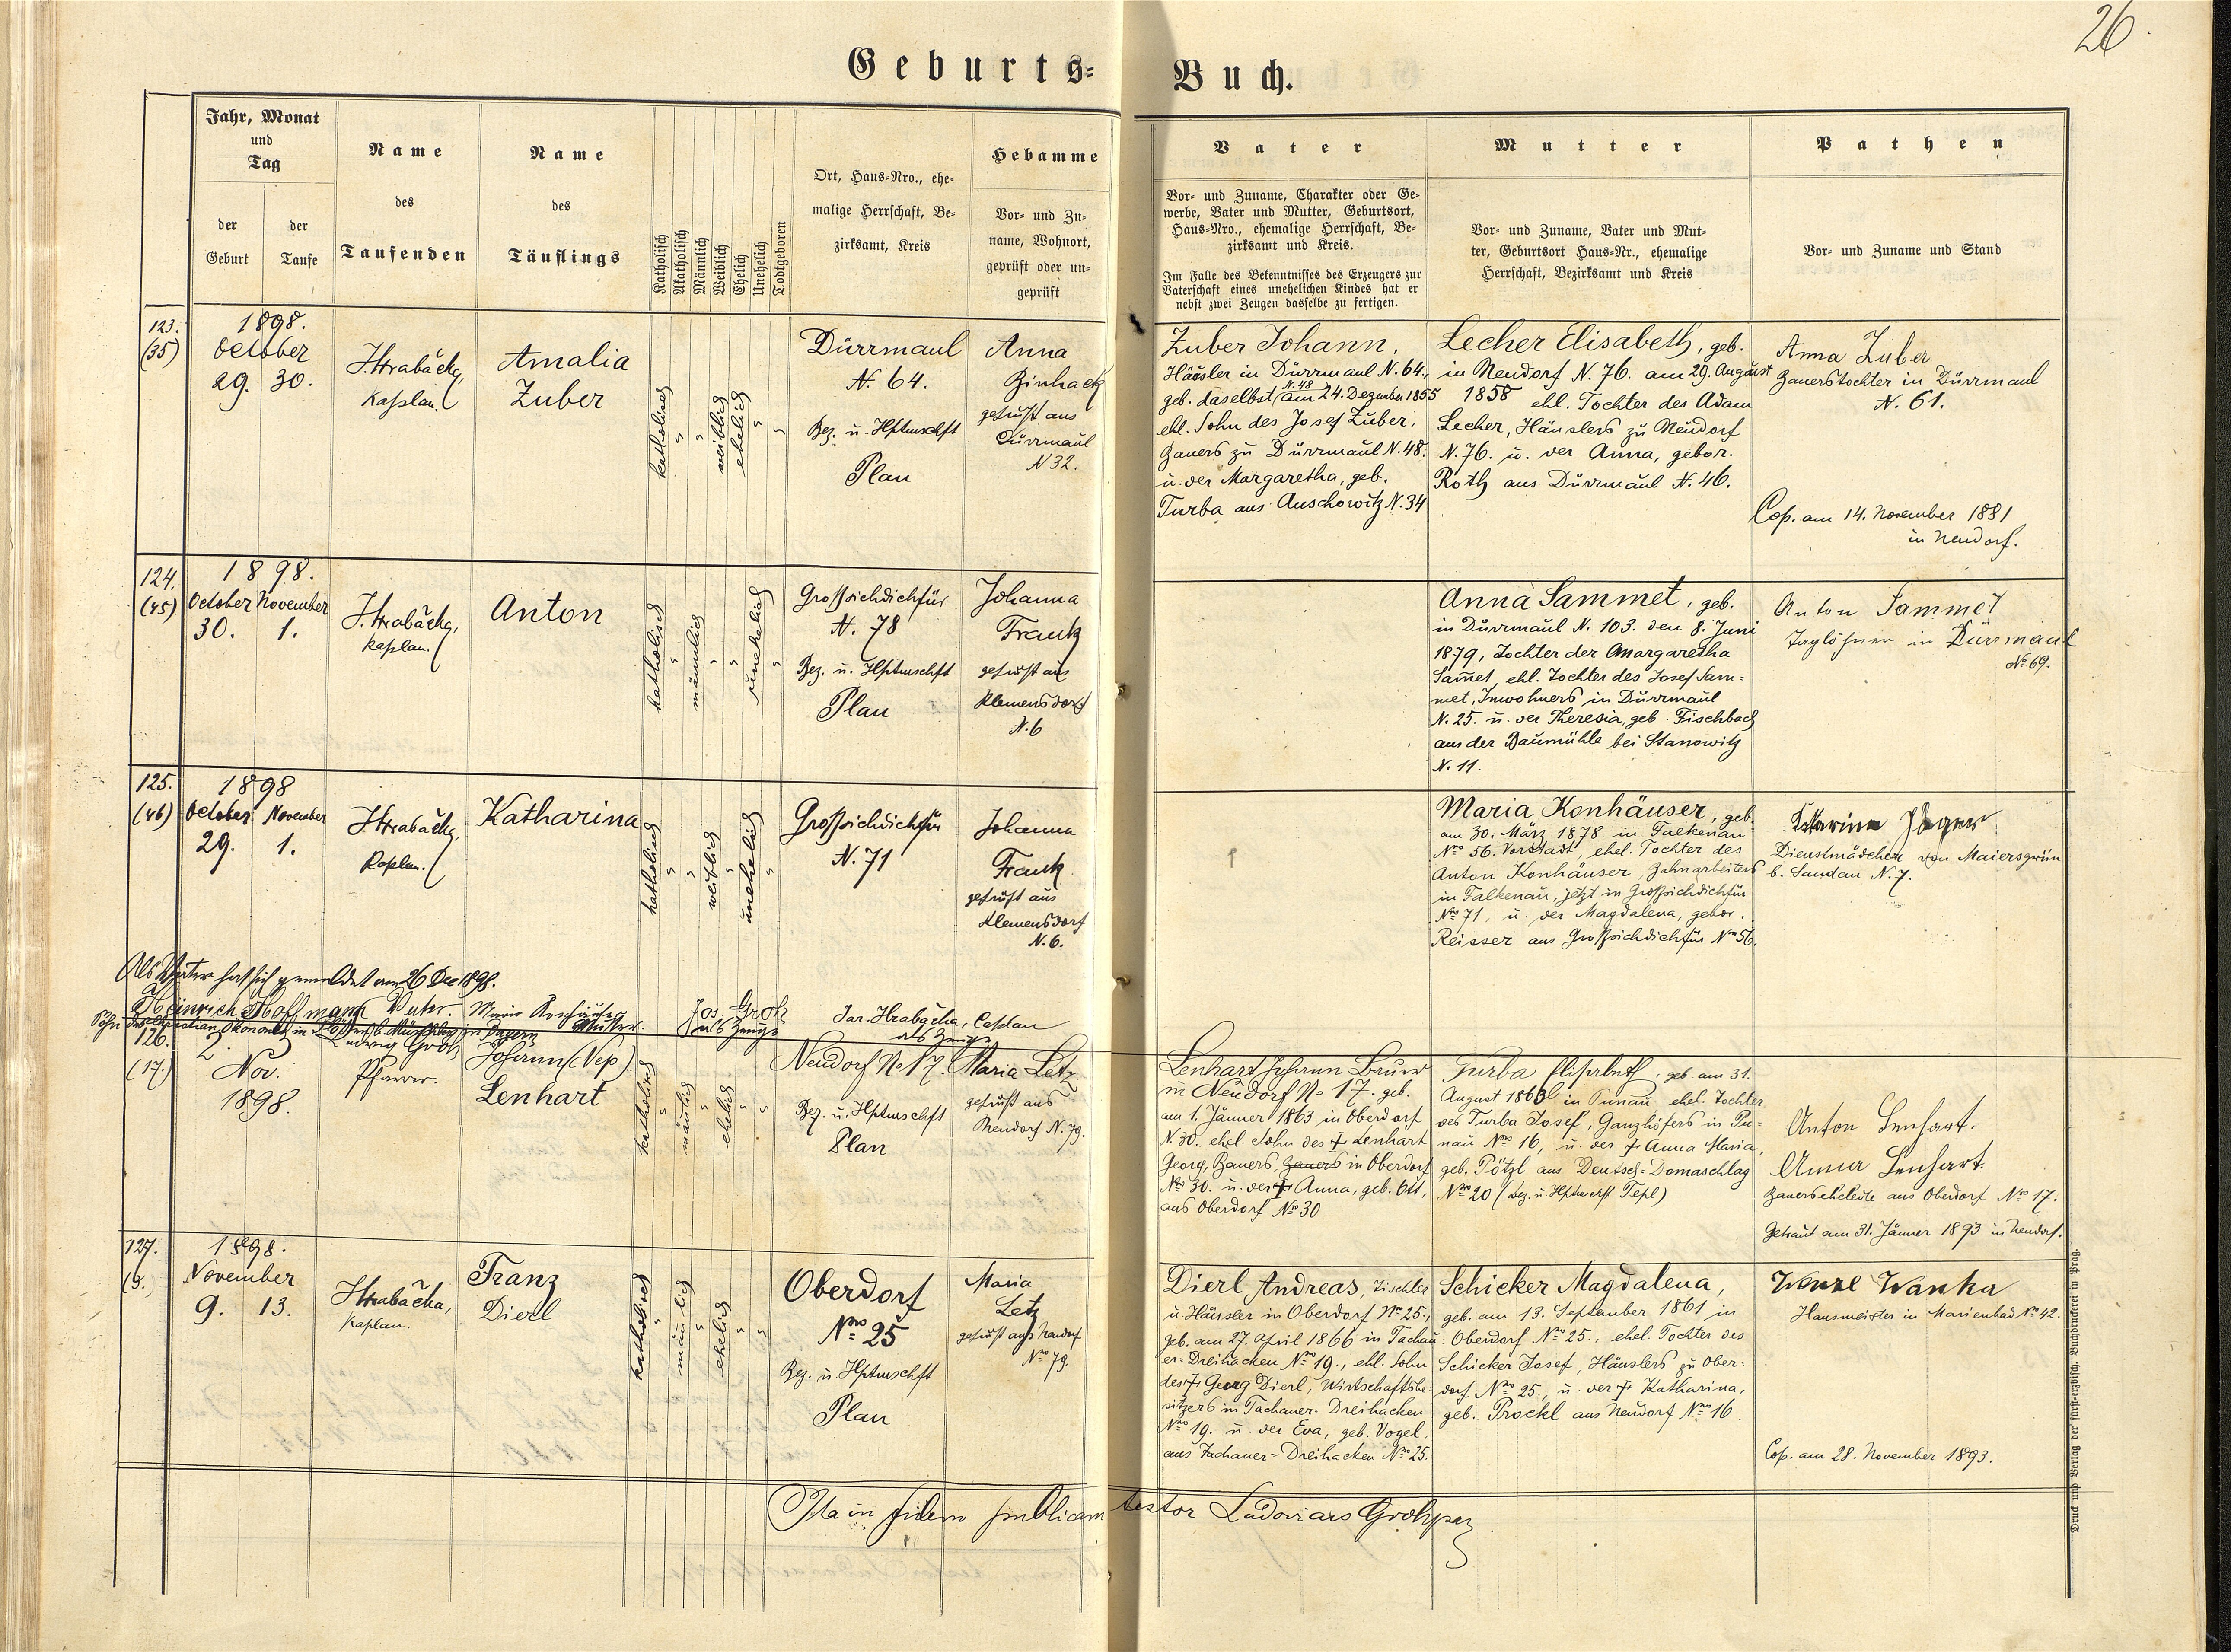 26.
Geburts=
Buch.
Jahr, Monat
und
Tag
der
Geburt
der
Taufe
Name
des
Taufenden
Name
des
Täuflings
Katholisch
Akatholisch
Männlich
Weiblich
Ehelich
Unehelich
Todtgeboren
Ort, Haus=Nro., ehe=
malige Herrschaft, Be=
zirksamt, Kreis
Hebamme
Vor= und Zu=
name, Wohnort,
geprüft oder un=
geprüft
Vater
Vor= und Zuname, Charakter oder Ge=
werbe, Vater und Mutter, Geburtsort,
Haus=Nro., ehemalige Herrschaft, Be=
zirksamt und Kreis.
Im Falle des Bekenntnisses des Erzeugers zur
Vaterschaft eines unehelichen Kindes hat er
nebst zwei Zeugen dasselbe zu fertigen.
Mutter
Vor= und Zuname, Vater und Mut=
ter, Geburtsort Haus=Nr., ehemalige
Herrschaft, Bezirksamt und Kreis
Pathen
Vor= und Zuname und Stand
123.
(35)
1898.
October
29. 30.
J. Hrabačka,
Kaplan.
Amalia
Zuber
katholisch
"
"
weiblich
ehelich
"
"
Dürrmaul
N. 64.
Bez. u. Hptmschft
Plan
Anna
geprüft aus
Dürrmaul
N 32.
Zuber Johann,
Häusler in Dürrmaul N. 64.,
geb. daselbst N. 48 am 24. Dezember 1855
ehl. Sohn des Josef Zuber,
Bauers zu Dürrmaul N. 48.
u. der Margaretha, geb.
Turba aus Auschowitz N. 34
Lecher Elisabeth, geb.
in Neudorf N. 76. am 29. August
1858 ehl. Tochter des Adam
Lecher, Häuslers zu Neudorf
N. 76. u. der Anna, gebor.
Roth aus Dürrmaul N. 46.
Anna Zuber
Bauerstochter in Dürrmaul
N. 61.
Cop. am 14. November 1881
in Neudorf.
124.
(45)
1898.
October November
30. 1.
J. Hrabačka,
Kaplan.
Anton
katholisch
"
männlich
"
"
unehelich
"
Großsichdichfür
N. 78
Bez. u. Hptmschft
Plan
Johanna
Frank
geprüft aus
Klemensdorf
N. 6
Anna Sammet, geb.
in Dürrmaul N. 103. den 8. Juni
1879, Tochter der Margaretha
Sam̄et, ehl. Tochter des Josef Sam=
met, Inwohners in Dürrmaul
N. 25. u. der Theresia, geb. Fischbach
aus der Baumühle bei Stanowitz
N. 11.
Anton Sammet
Taglöhner in Dürrmaul
No 69.
125.
(46)
1898
October November
29. 1.
J. Hrabačka,
Kaplan.
Katharina
katholisch
"
"
weiblich
"
unehelich
"
Großsichdichfür
N. 71
Johanna
Frank
geprüft aus
Klemensdorf
N. 6.
Maria Konhäuser, geb.
am 30. März 1878 in Falkenau
Nro 56. Vorstadt, ehel. Tochter des
Anton Konhäuser, Bahnarbeiters
in Falkenau, jetzt in Großsichdichfür
Nro 71, u. der Magdalena, gebor.
Reisser aus Großsichdichfür Nro 56.
Katarina Jäger
Dienstmädchen von Maiersgrün
b. Sandau N. 7.
Als Vater hat sich gemeldet am 26 Dec 1898.
Heinrich Hoffmann Vater. Maria Konhäuser
Mutter.
Jos. Groh
als Zeuge
Jar. Hrabačka, Caplan
als Zeuge
126.
(17.)
2.
Nov.
1898.
Ludwig Groh
Pfarrer.
Johann (Nep.)
Lenhart
katholisch
"
männlich
"
ehelich
"
"
Neudorf No 17.
Bez. u. Hptmschft
Plan
Maria Letz
geprüft aus
Neudorf N. 79.
Lenhart Johann Bauer
in Neudorf No 17. geb.
am 1. Jänner 1863 in Oberdorf
N. 30. ehel. Sohn des † Lenhart
Georg, Bauers, Bauers in Oberdorf
Nro 30. u. der † Anna, geb. Ott,
aus Oberdorf Nro 30
Turba Elisabeth, geb. am 31.
August in Punau ehel. Tochter
des Turba Josef, Ganzhöfers in Pu=
nau Nro 16, u. der † Anna Maria,
geb. Pötzl aus Deutsch=Domaschlag
Nro 20 (Bez. u Hptmschft Tepl)
Anton Lenhart.
Anna Lenhart.
Bauerseheleute aus Oberdorf Nro 17.
Getraut am 31. Jänner 1893 in Neudorf.
127.
(9.
1898.
November
9. 13.
J. Hrabačka,
Kaplan.
Franz
Dierl
katholisch
"
männlich
"
ehelich
"
"
Oberdorf
Nro 25
Bez. u. Hptmschft
Plan
Maria
Letz
geprüft aus Neudorf
Nro 79.
Dierl Andreas, Tischler
u. Häusler in Oberdorf Nro 25.,
geb. am 27. April 1866 in Tachau=
er=Dreihacken Nro 19., ehl. Sohn
des † Georg Dierl, Wirtschaftsbe=
sitzers in Tachauer=Dreihacken
Nro 19. u. der Eva, geb. Vogel,
aus Tachauer=Dreihacken Nro 25.
Schicker Magdalena,
geb. am 13. September 1861 in
Oberdorf Nro 25., ehel. Tochter des
Schicker Josef, Häuslers zu Ober=
dorf Nro 25., u. der † Katharina,
geb. Prockl aus Neudorf Nro 16.
Wenzl Wanka
Hausmeister in Marienbad Nro 42.
Cop. am 28. November 1893.
Ita in fidem publicam testor Ludovicus Groh
Druck und Verlag der fürst=erzbisch. Buchdruckerei in Prag.